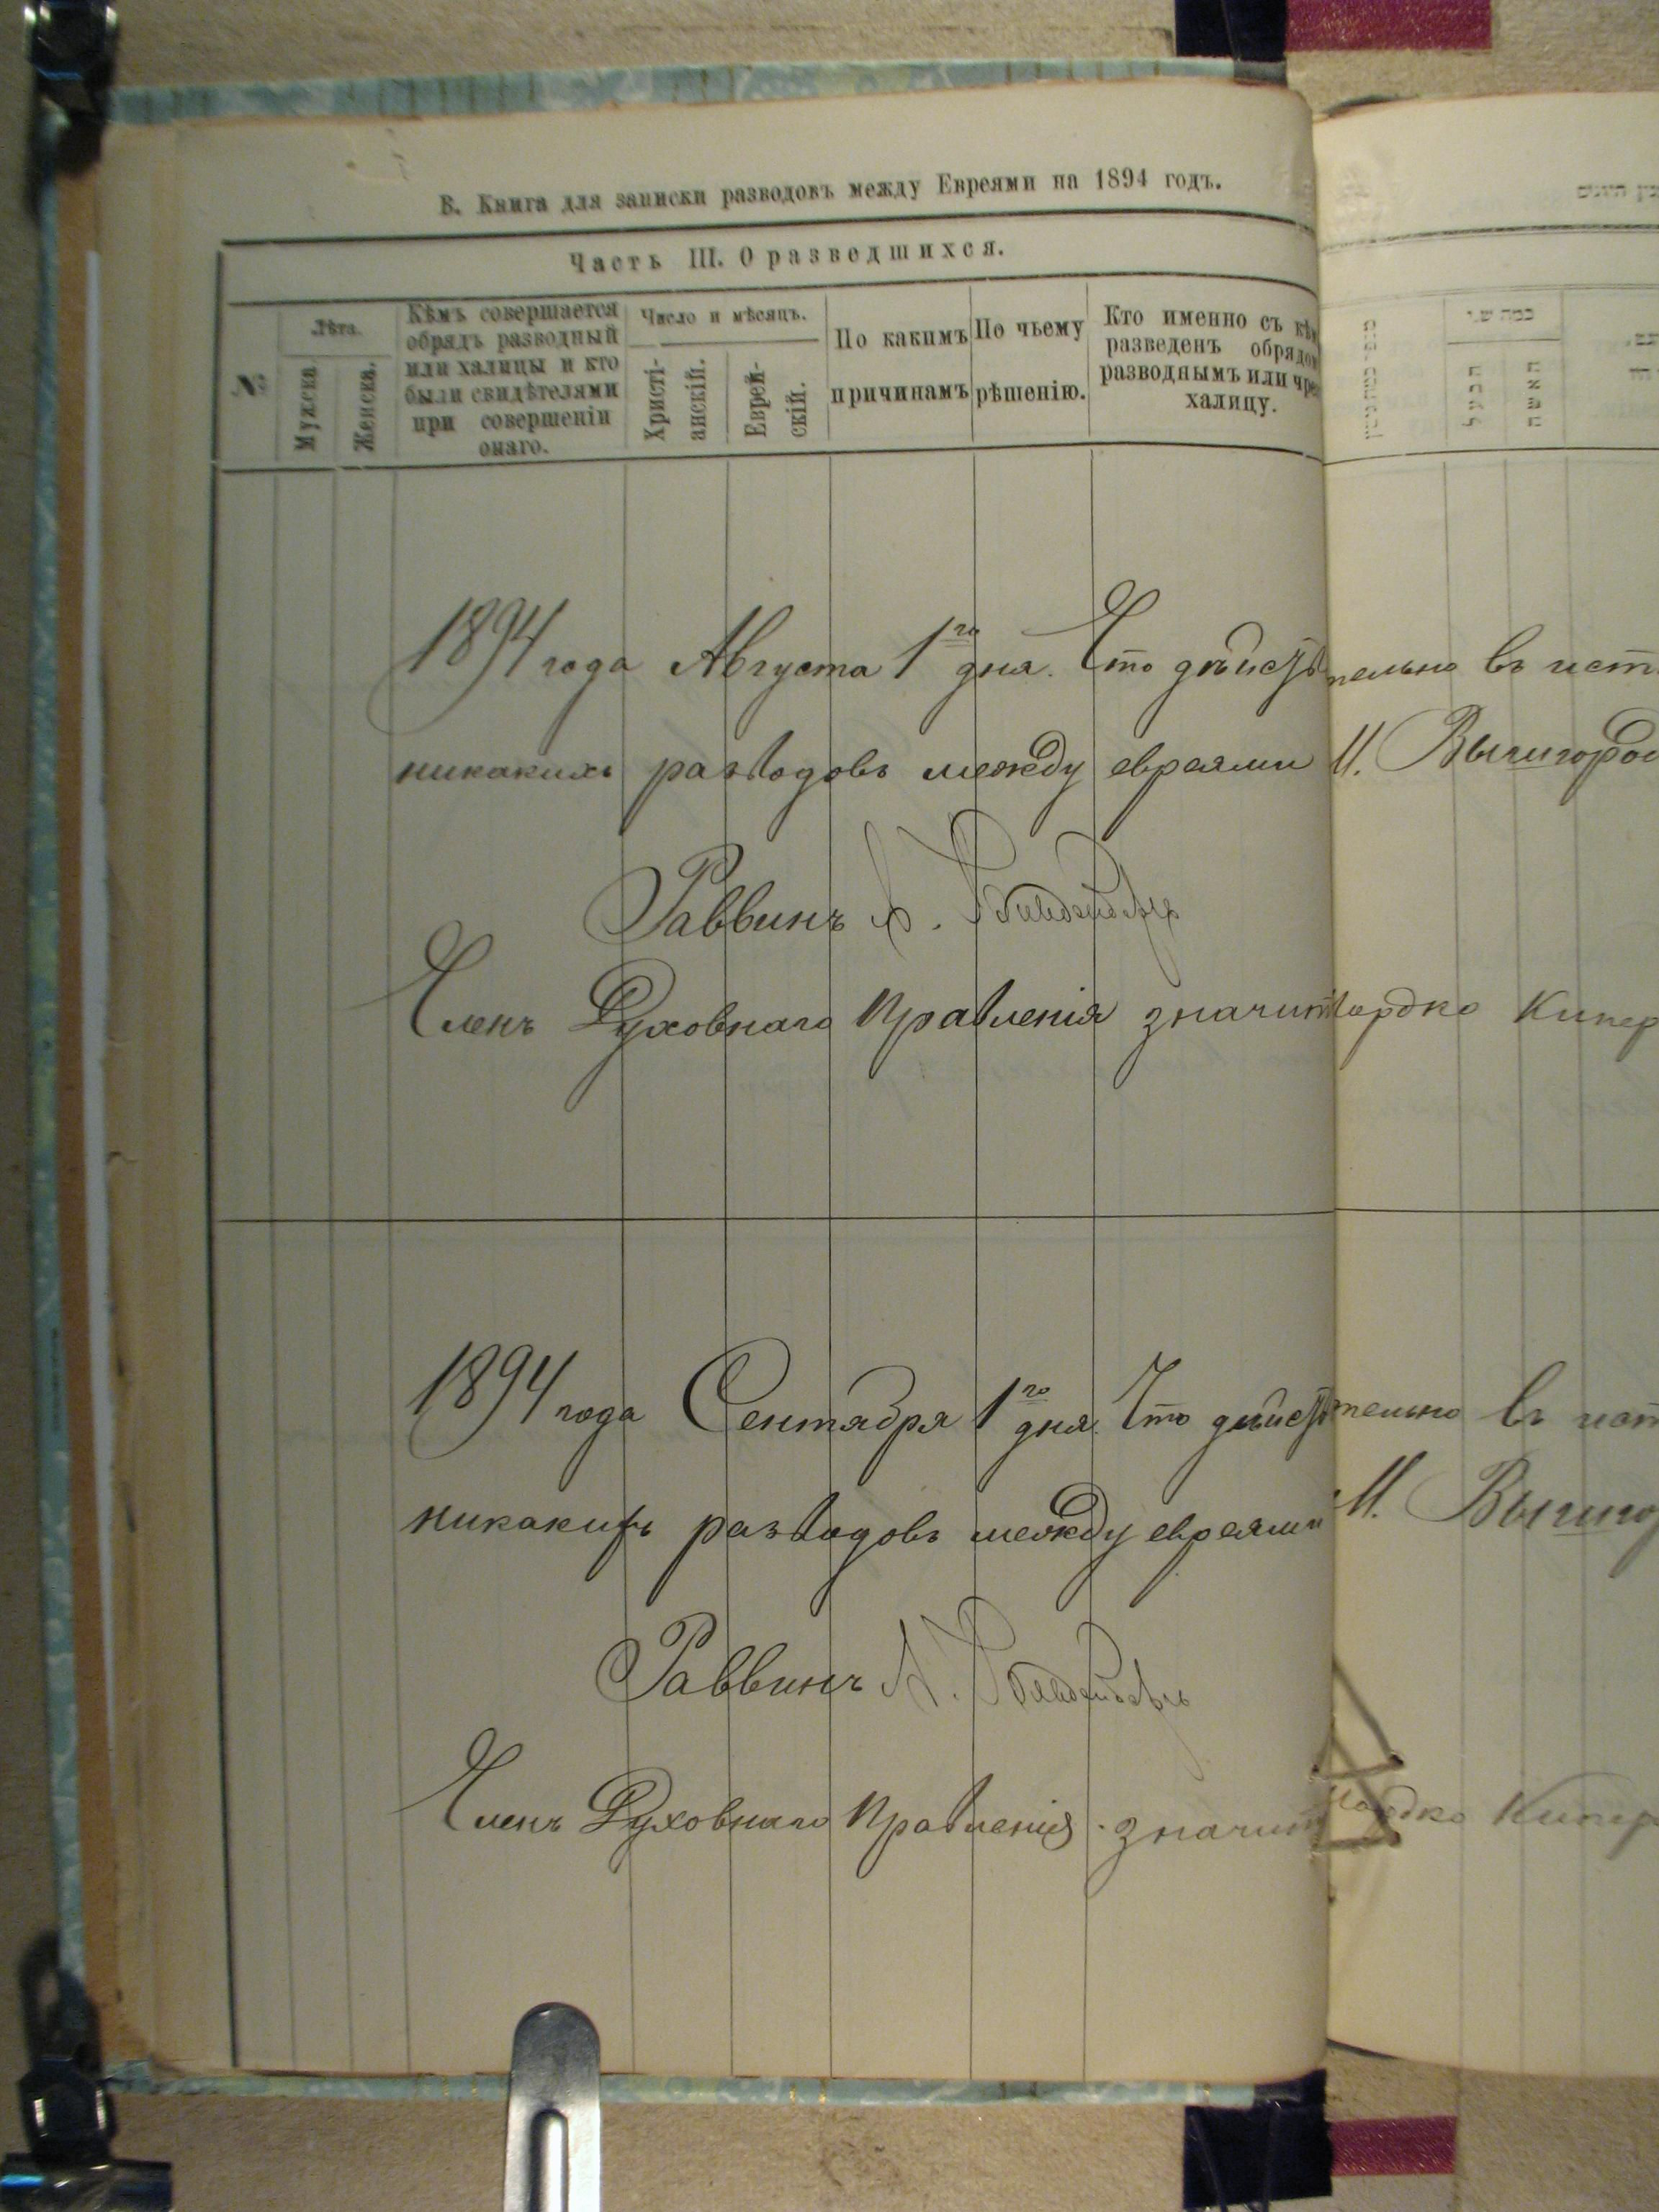 В. Книга для записки разводовъ между Евреями на 1894 годъ.
Часть III. О разведшихся.
№
Лѣта.
Мужска
Женска.
Кѣмъ совершается
обрядъ разводный
или халицы и кто
были свидѣтелями
при совершеніи
онаго.
Число и мѣсяцъ.
Христі-
анскій.
Еврей-
скій.
По какимъ
причинамъ
По чьему
рѣшенію.
Кто именно съ кѣм
разведенъ обрядом
разводнымъ или чре
халицу.
כמה ש׳
הבעל
האשה
1894 года Августа 1го дня. Что дѣйствительно въ ист
никакихъ разводовъ между евреями М. Вышгород
Раввинъ
Членъ Духовнаго Правленія значит Мордко Кипер
1894 года Сентября 1го дня. Что дѣйствительно въ ист
никакихъ разводовъ между евреями М. Вышгор
Раввинъ
Членъ Духовнаго Правленія значит Мордко Кипер